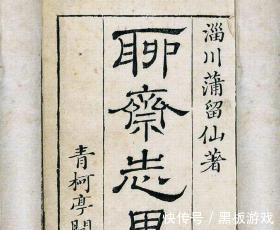 淄川蒲留仙著
聊齋志異
青柯亭開
快传号 / 黑板游戏